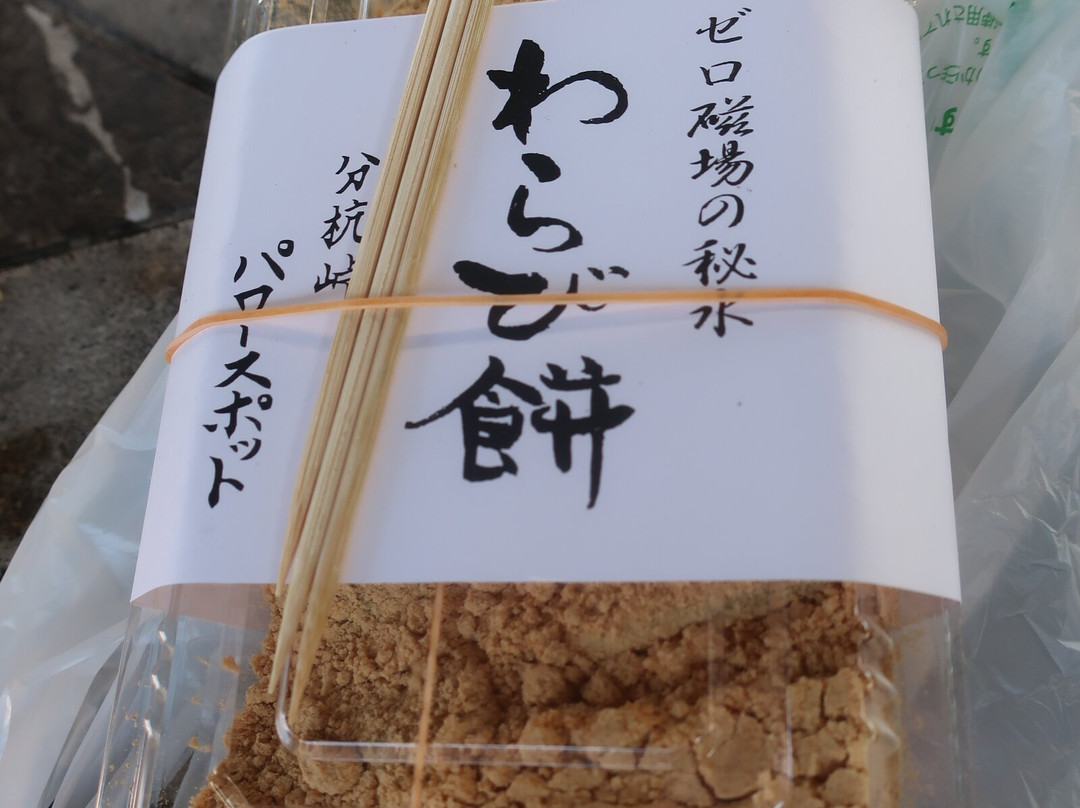 ゼロ磁場の秘水
わらび餅
分杭峠
パワースポット